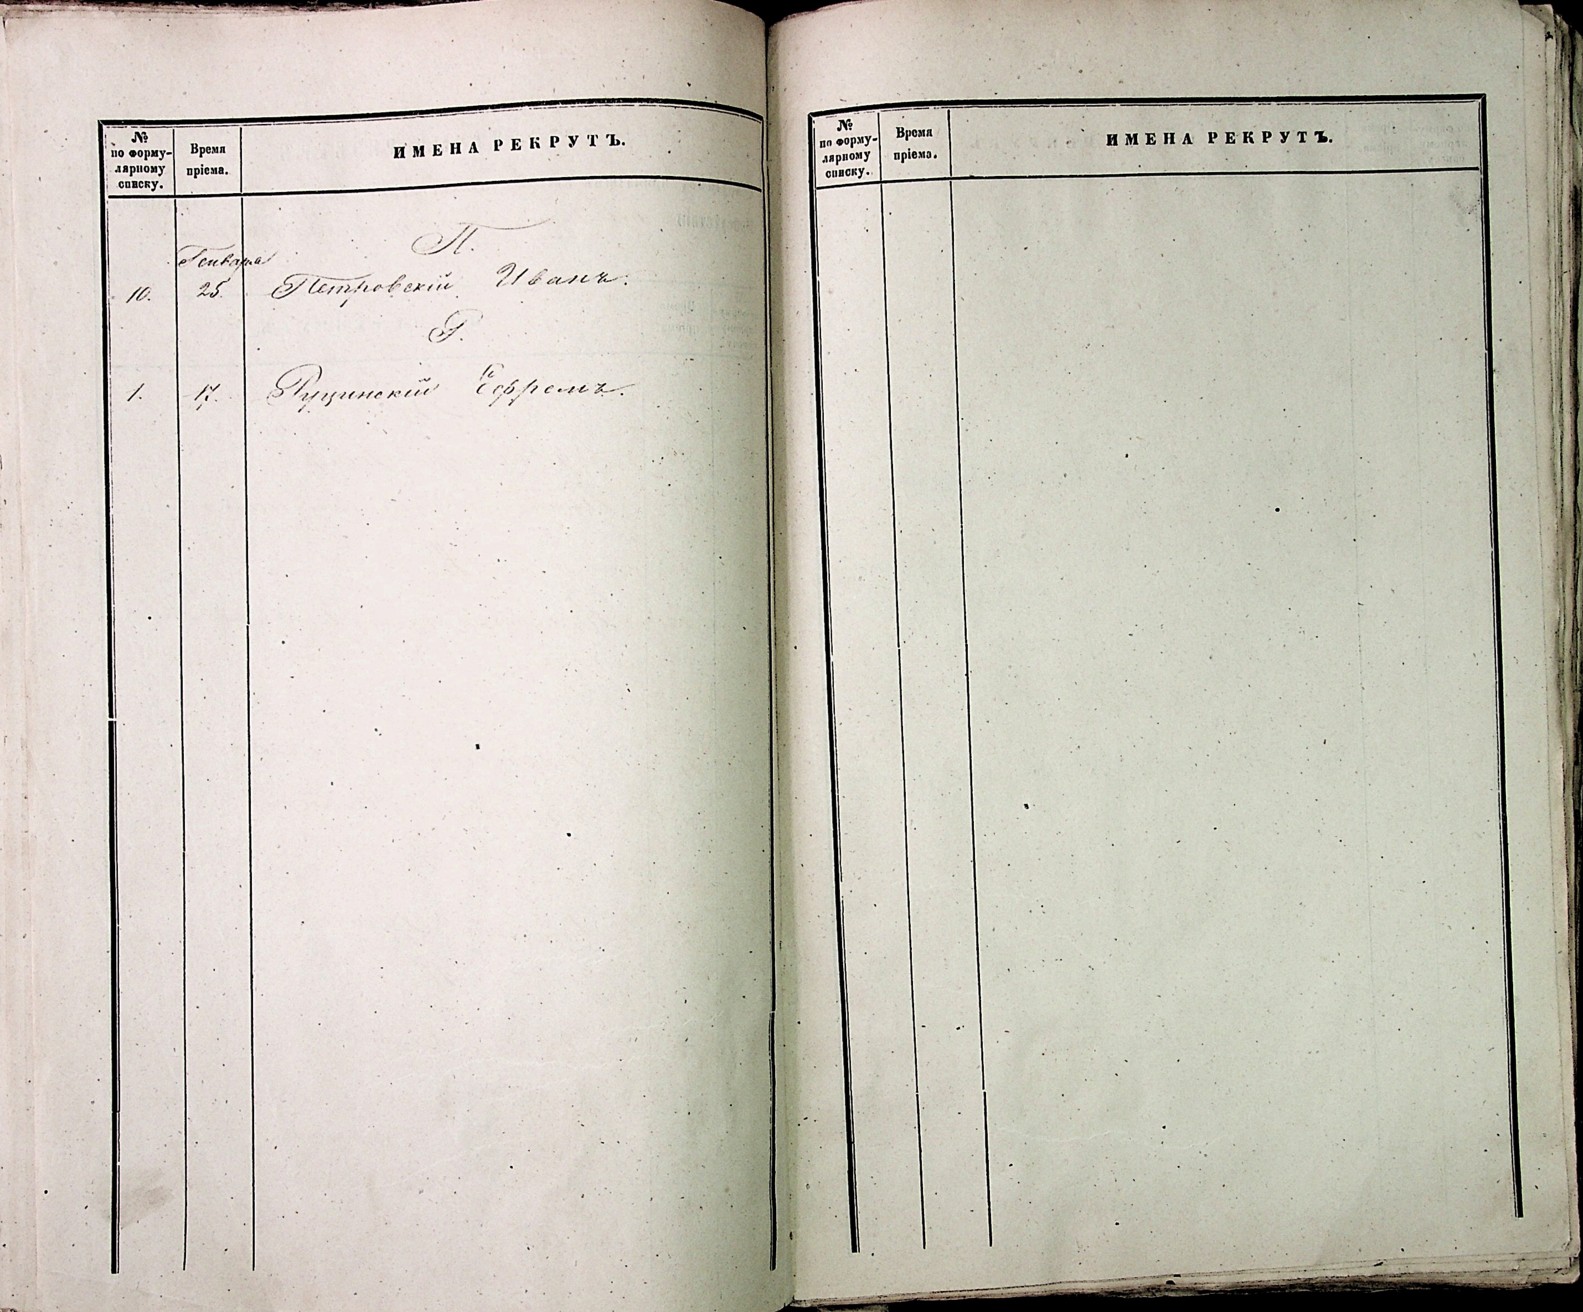 №
по форму-
лярному
списку.
Время
пріема.
ИМЕНА РЕКРУТЪ.
П.
Генваря
10. 25. Петровскій Иванъ.
Р.
1. 17. Рущинскій Ефремъ.
№
по форму-
лярному
списку.
Время
пріема.
ИМЕНА РЕКРУТЪ.